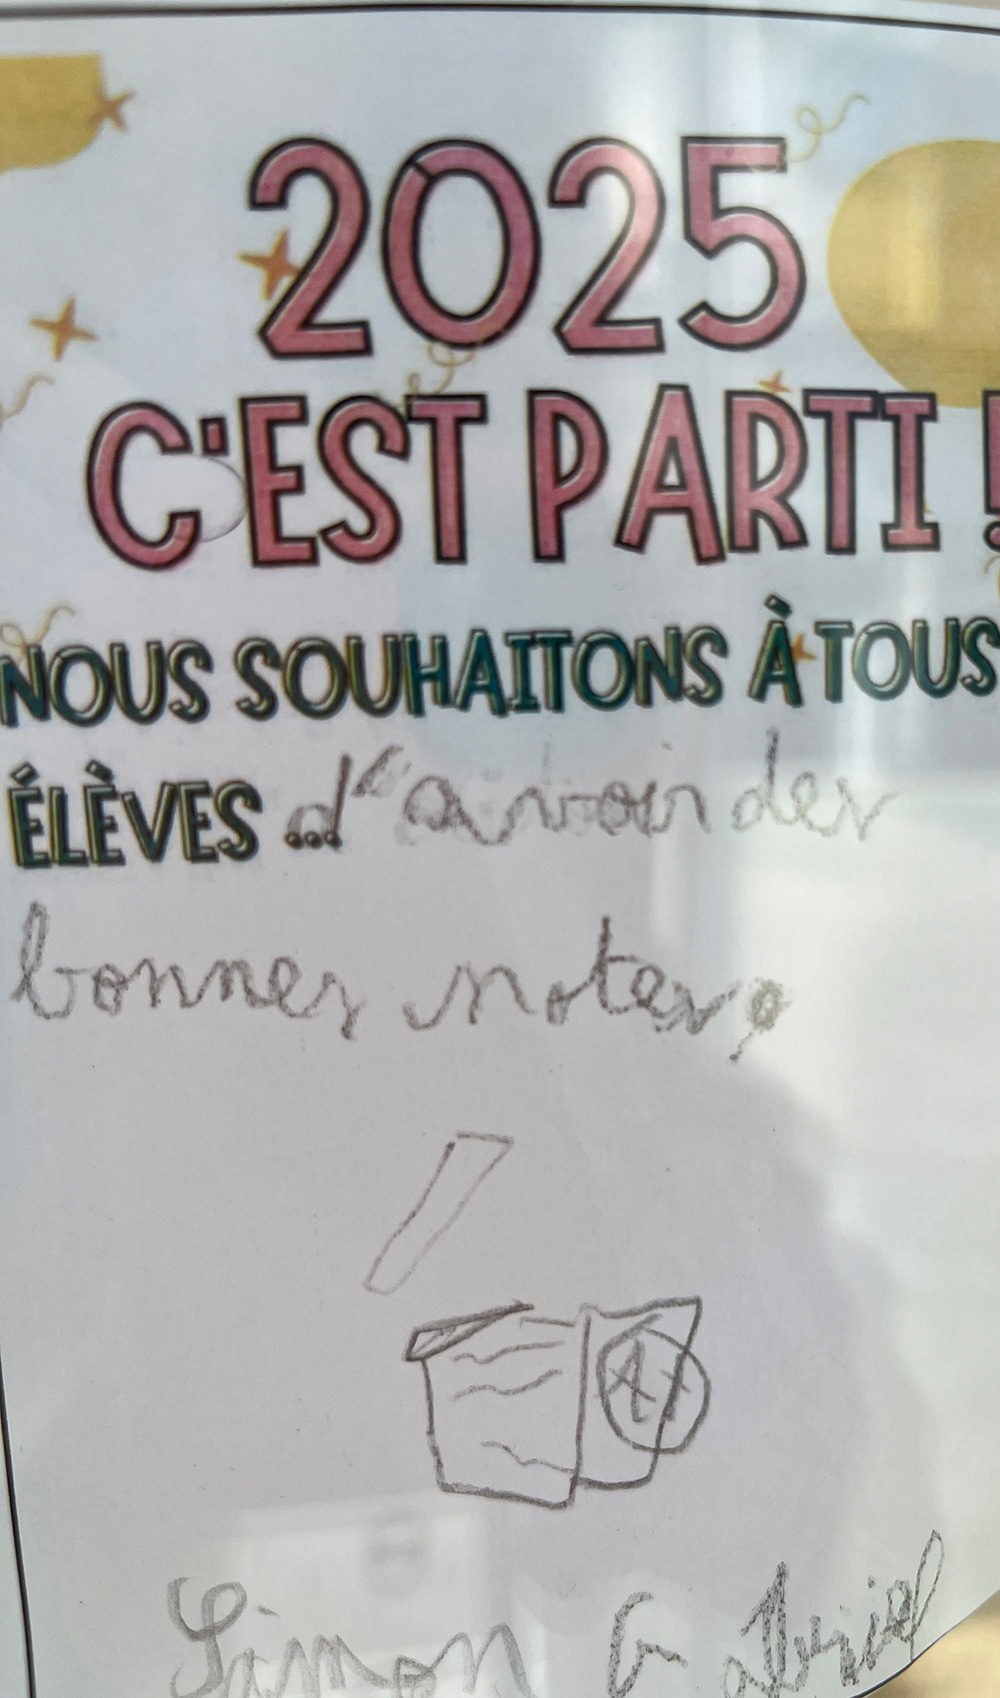 2025
C'EST PARTI !
NOUS SOUHAITONS À TOUS
ÉLÈVES ... d'avoir des
bonnes notes,
A+
Simon Gabriel